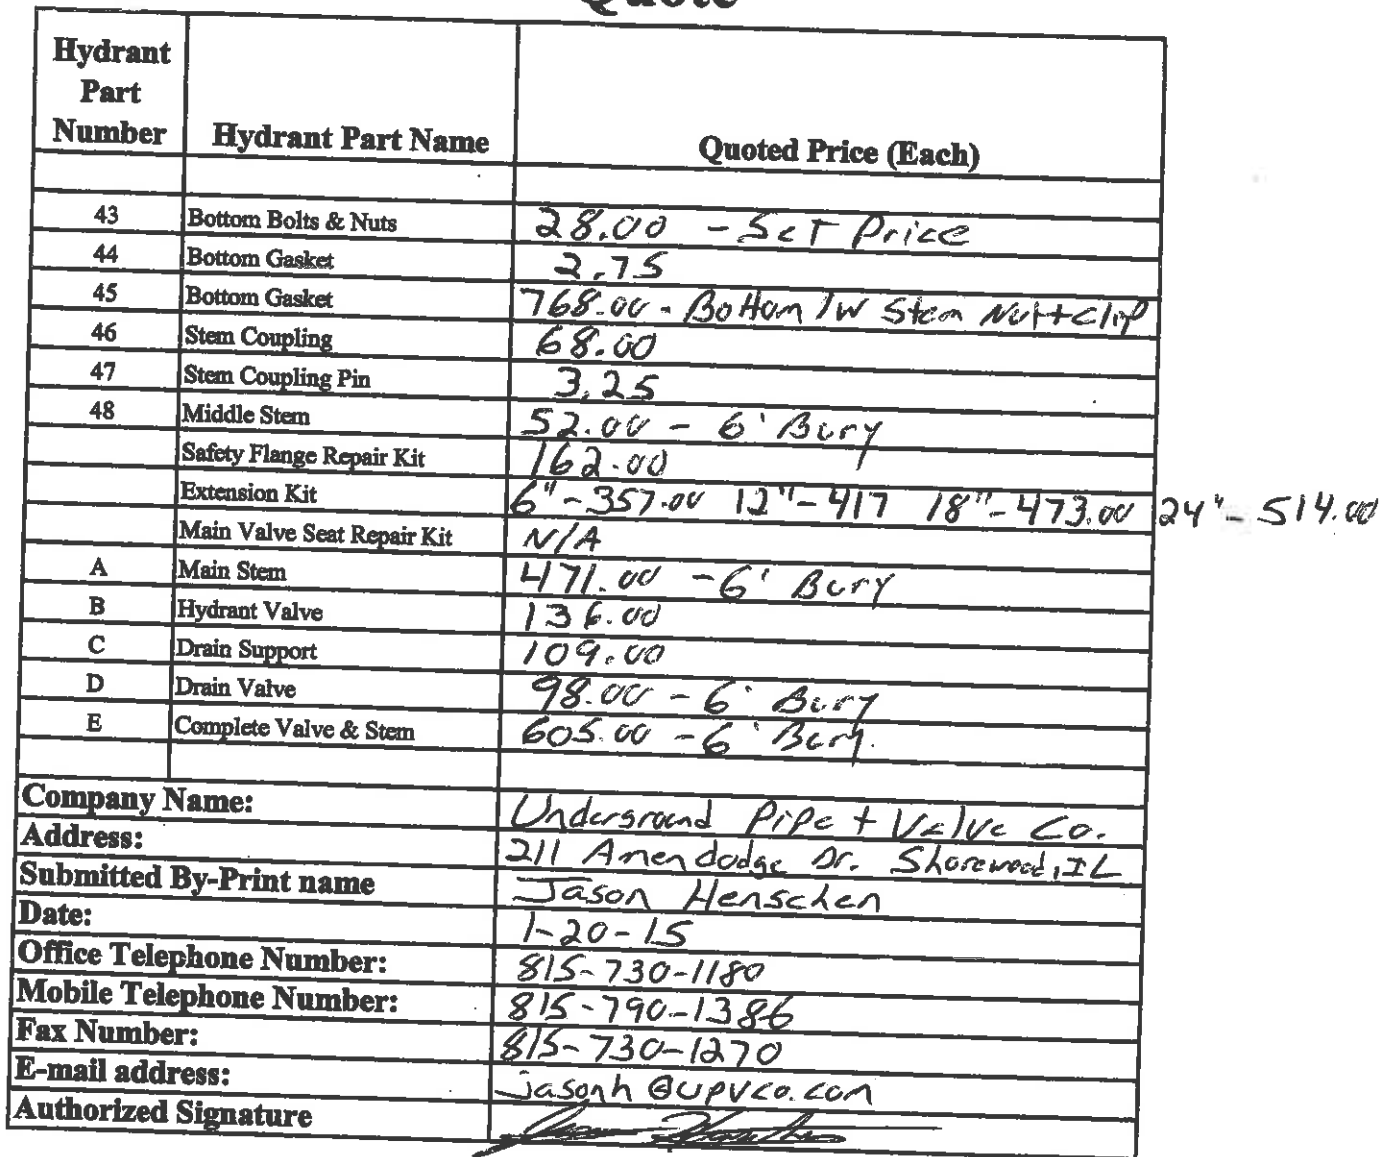 Quote
Hydrant Part Number Hydrant Part Name Quoted Price (Each)
43 Bottom Bolts & Nuts 28.00 - Set Price
44 Bottom Gasket 2.75
45 Bottom Gasket 768.00 - Bottom /w Stem Nut + Clip
46 Stem Coupling 68.00
47 Stem Coupling Pin 3.25
48 Middle Stem 52.00 - 6' Bury
Safety Flange Repair Kit 162.00
Extension Kit 6" - 357.00 12" - 417 18" - 473.00 24" - 514.00
Main Valve Seat Repair Kit N/A
A Main Stem 471.00 - 6' Bury
B Hydrant Valve 136.00
C Drain Support 109.00
D Drain Valve 98.00 - 6' Bury
E Complete Valve & Stem 605.00 - 6' Bury
Company Name: Underground Pipe + Valve Co.
Address: 211 Amendodge Dr. Shorewood, IL
Submitted By-Print name Jason Henschen
Date: 1-20-15
Office Telephone Number: 815-730-1180
Mobile Telephone Number: 815-790-1386
Fax Number: 815-730-1270
E-mail address: jasonh@upvco.com
Authorized Signature